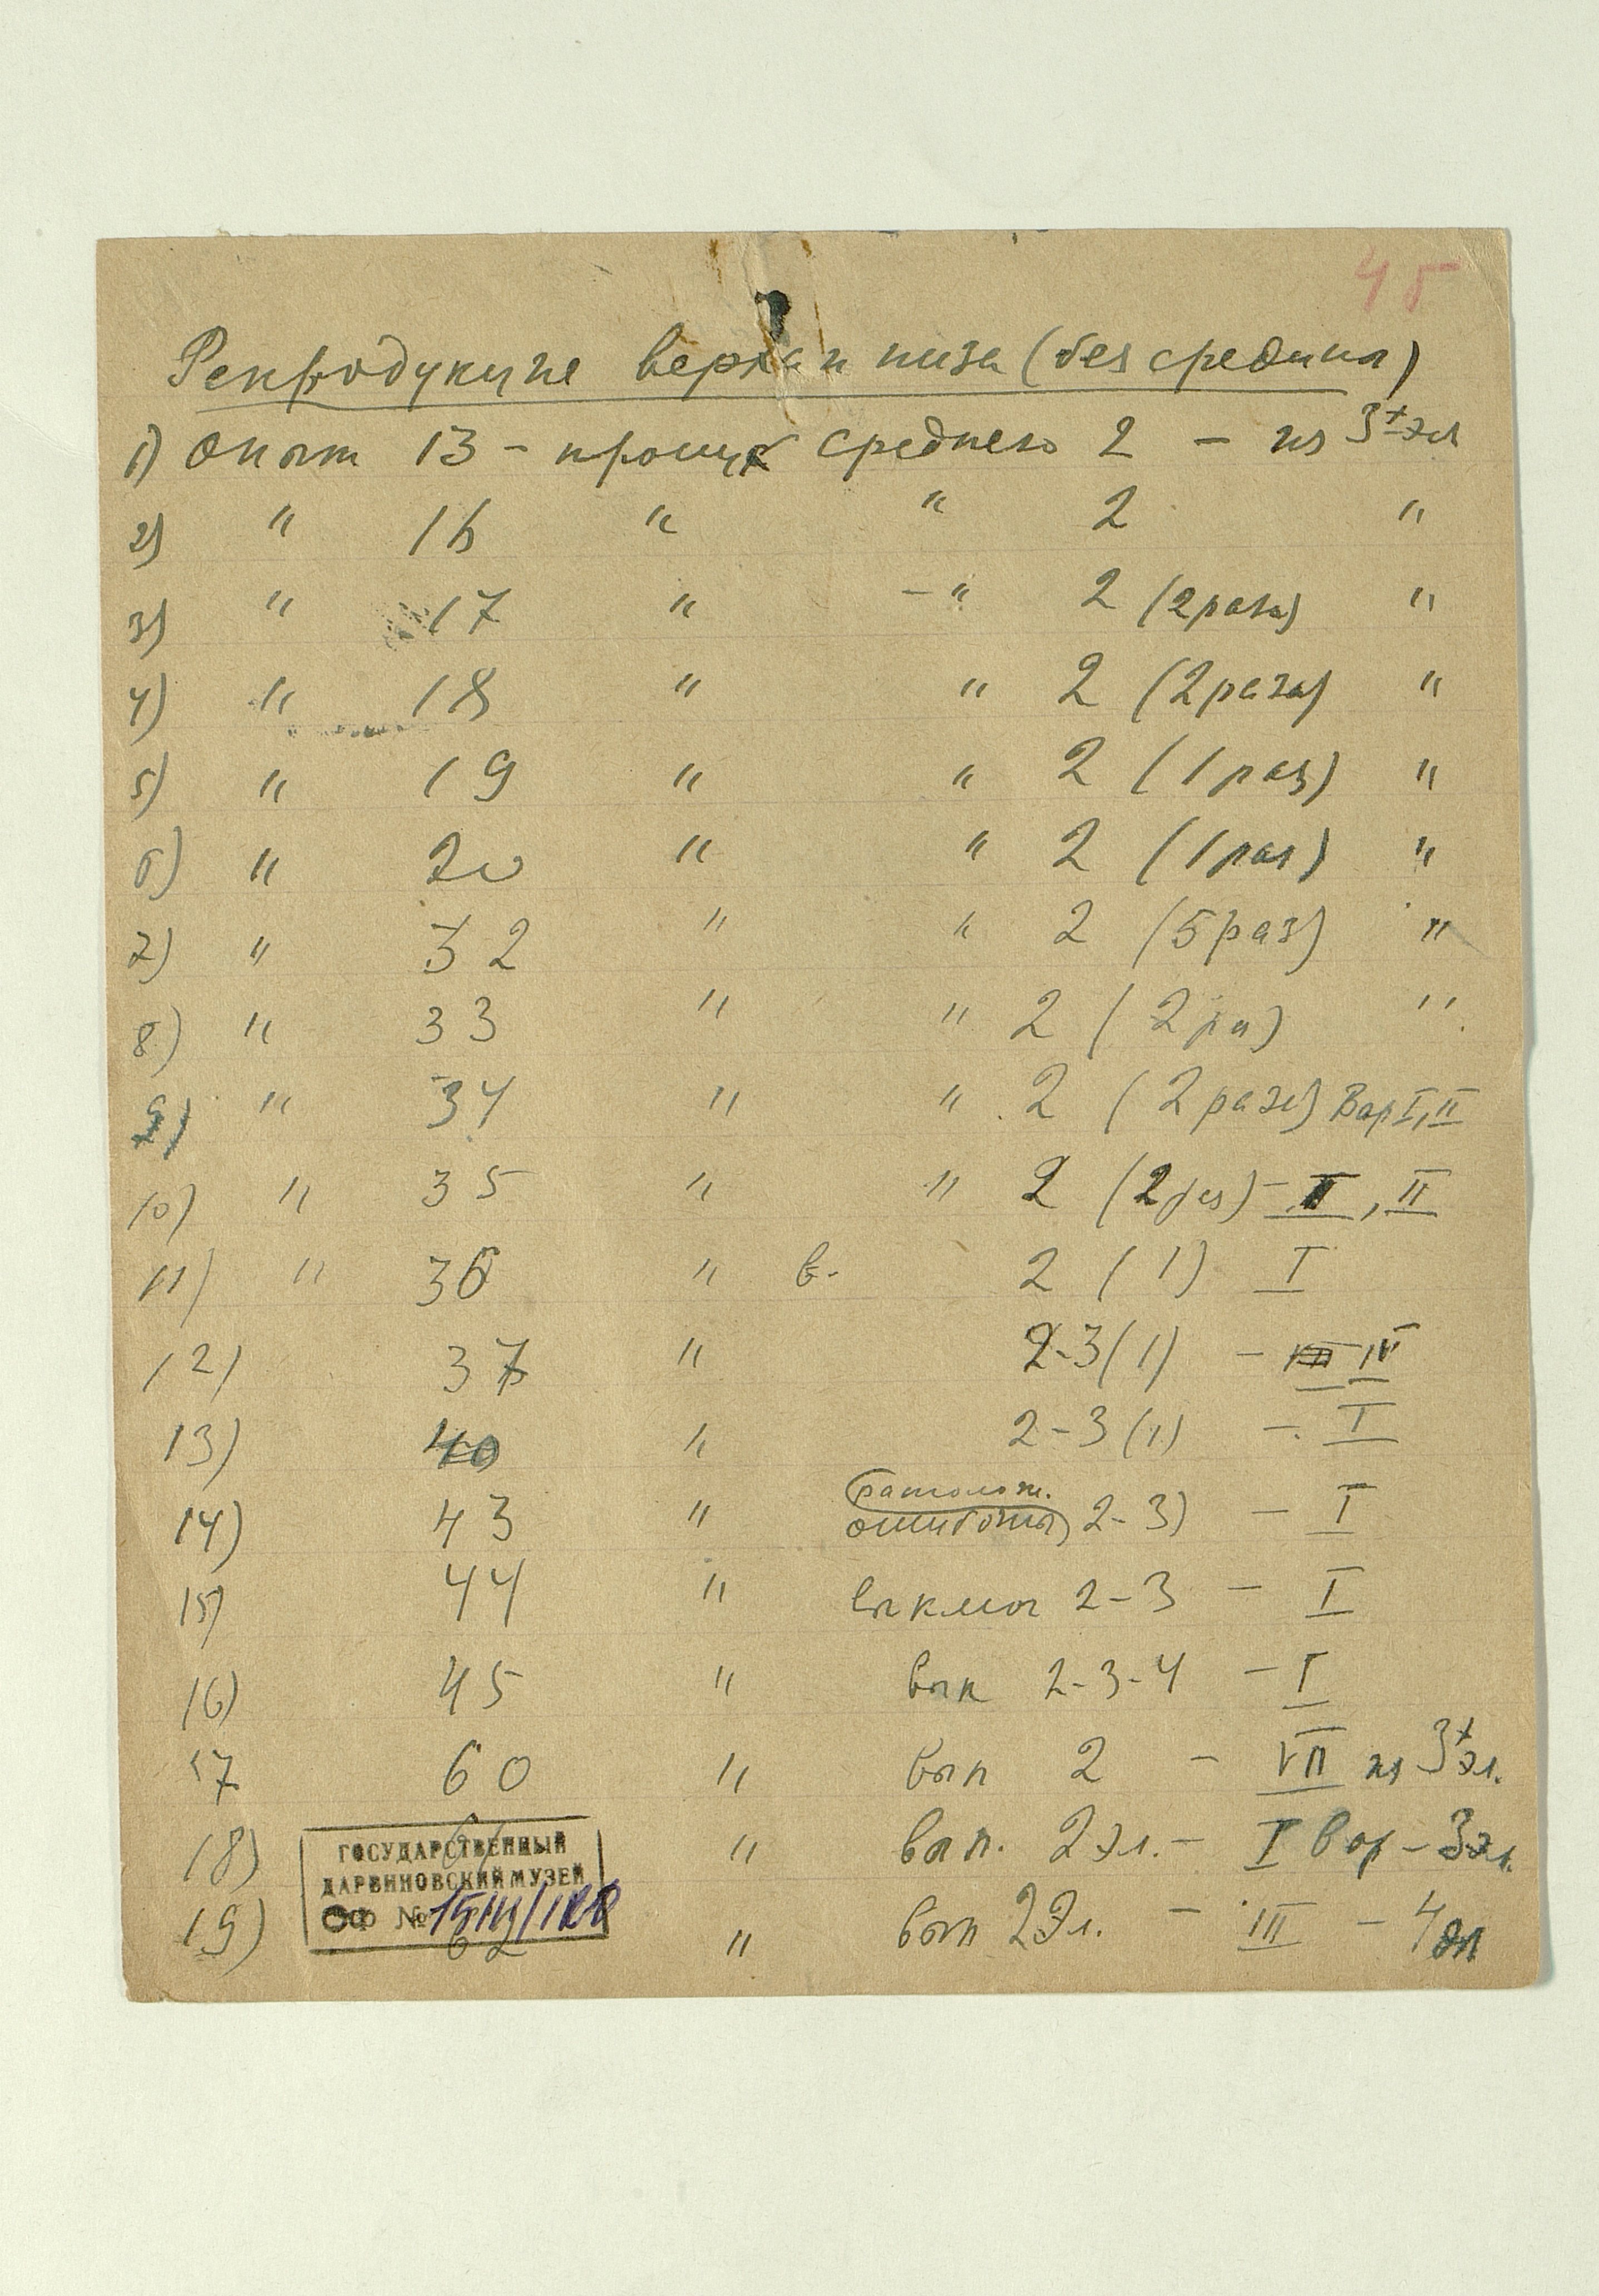 45
Репродукция верха и низа (без средины)
1) Опыт 13 - пропуск среднего 2 - из 3х эл
2) " 16 " " 2 "
3) " 17 " - " 2 (2 раза) "
4) " 18 " " 2 (2 раза) "
5) " 19 " " 2 (1 раз) "
6) " 20 " " 2 (1 раз) "
7) " 32 " " 2 (5 раз) "
8) " 33 " " 2 (2 ра) "
9) " 34 " " 2 (2 раза) Вар I, II
10) " 35 " " 2 (2 раз) - II, II
11) " 36 " в. 2 (1) I
12) 37 " 2-3 (1) - IV
13) 40 " 2-3 (1) - I
14) 43 " 2-3) - I
15) 44 " выключ 2-3 - I
16) 45 " вык 2-3-4 - I
17 60 " вып 2 - VII из 3х эл.
18) 61 " вып. 2 эл. - I вар - 3 эл.
19) 62 " вып 2 эл. - III - 4 эл
ГОСУДАРСТВЕННЫЙ
ДАРВИНОВСКИЙ МУЗЕЙ
ОФ №